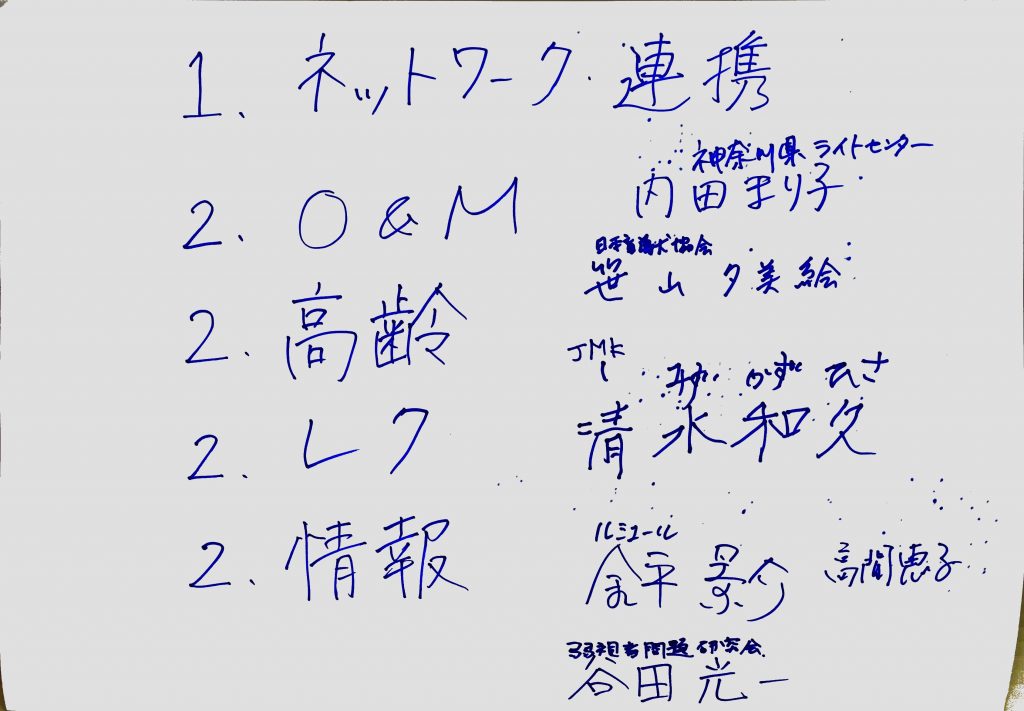 1. ネットワーク・連携
神奈川県ライトセンター
2. O & M 内田まり子
日本盲導犬協会
笹山夕美絵
2. 高齢
JMK
かず ひさ
2. レク 清水和久
ルミエール
2. 情報 金平景介 高間恵子
弱視者問題研究会
谷田光一